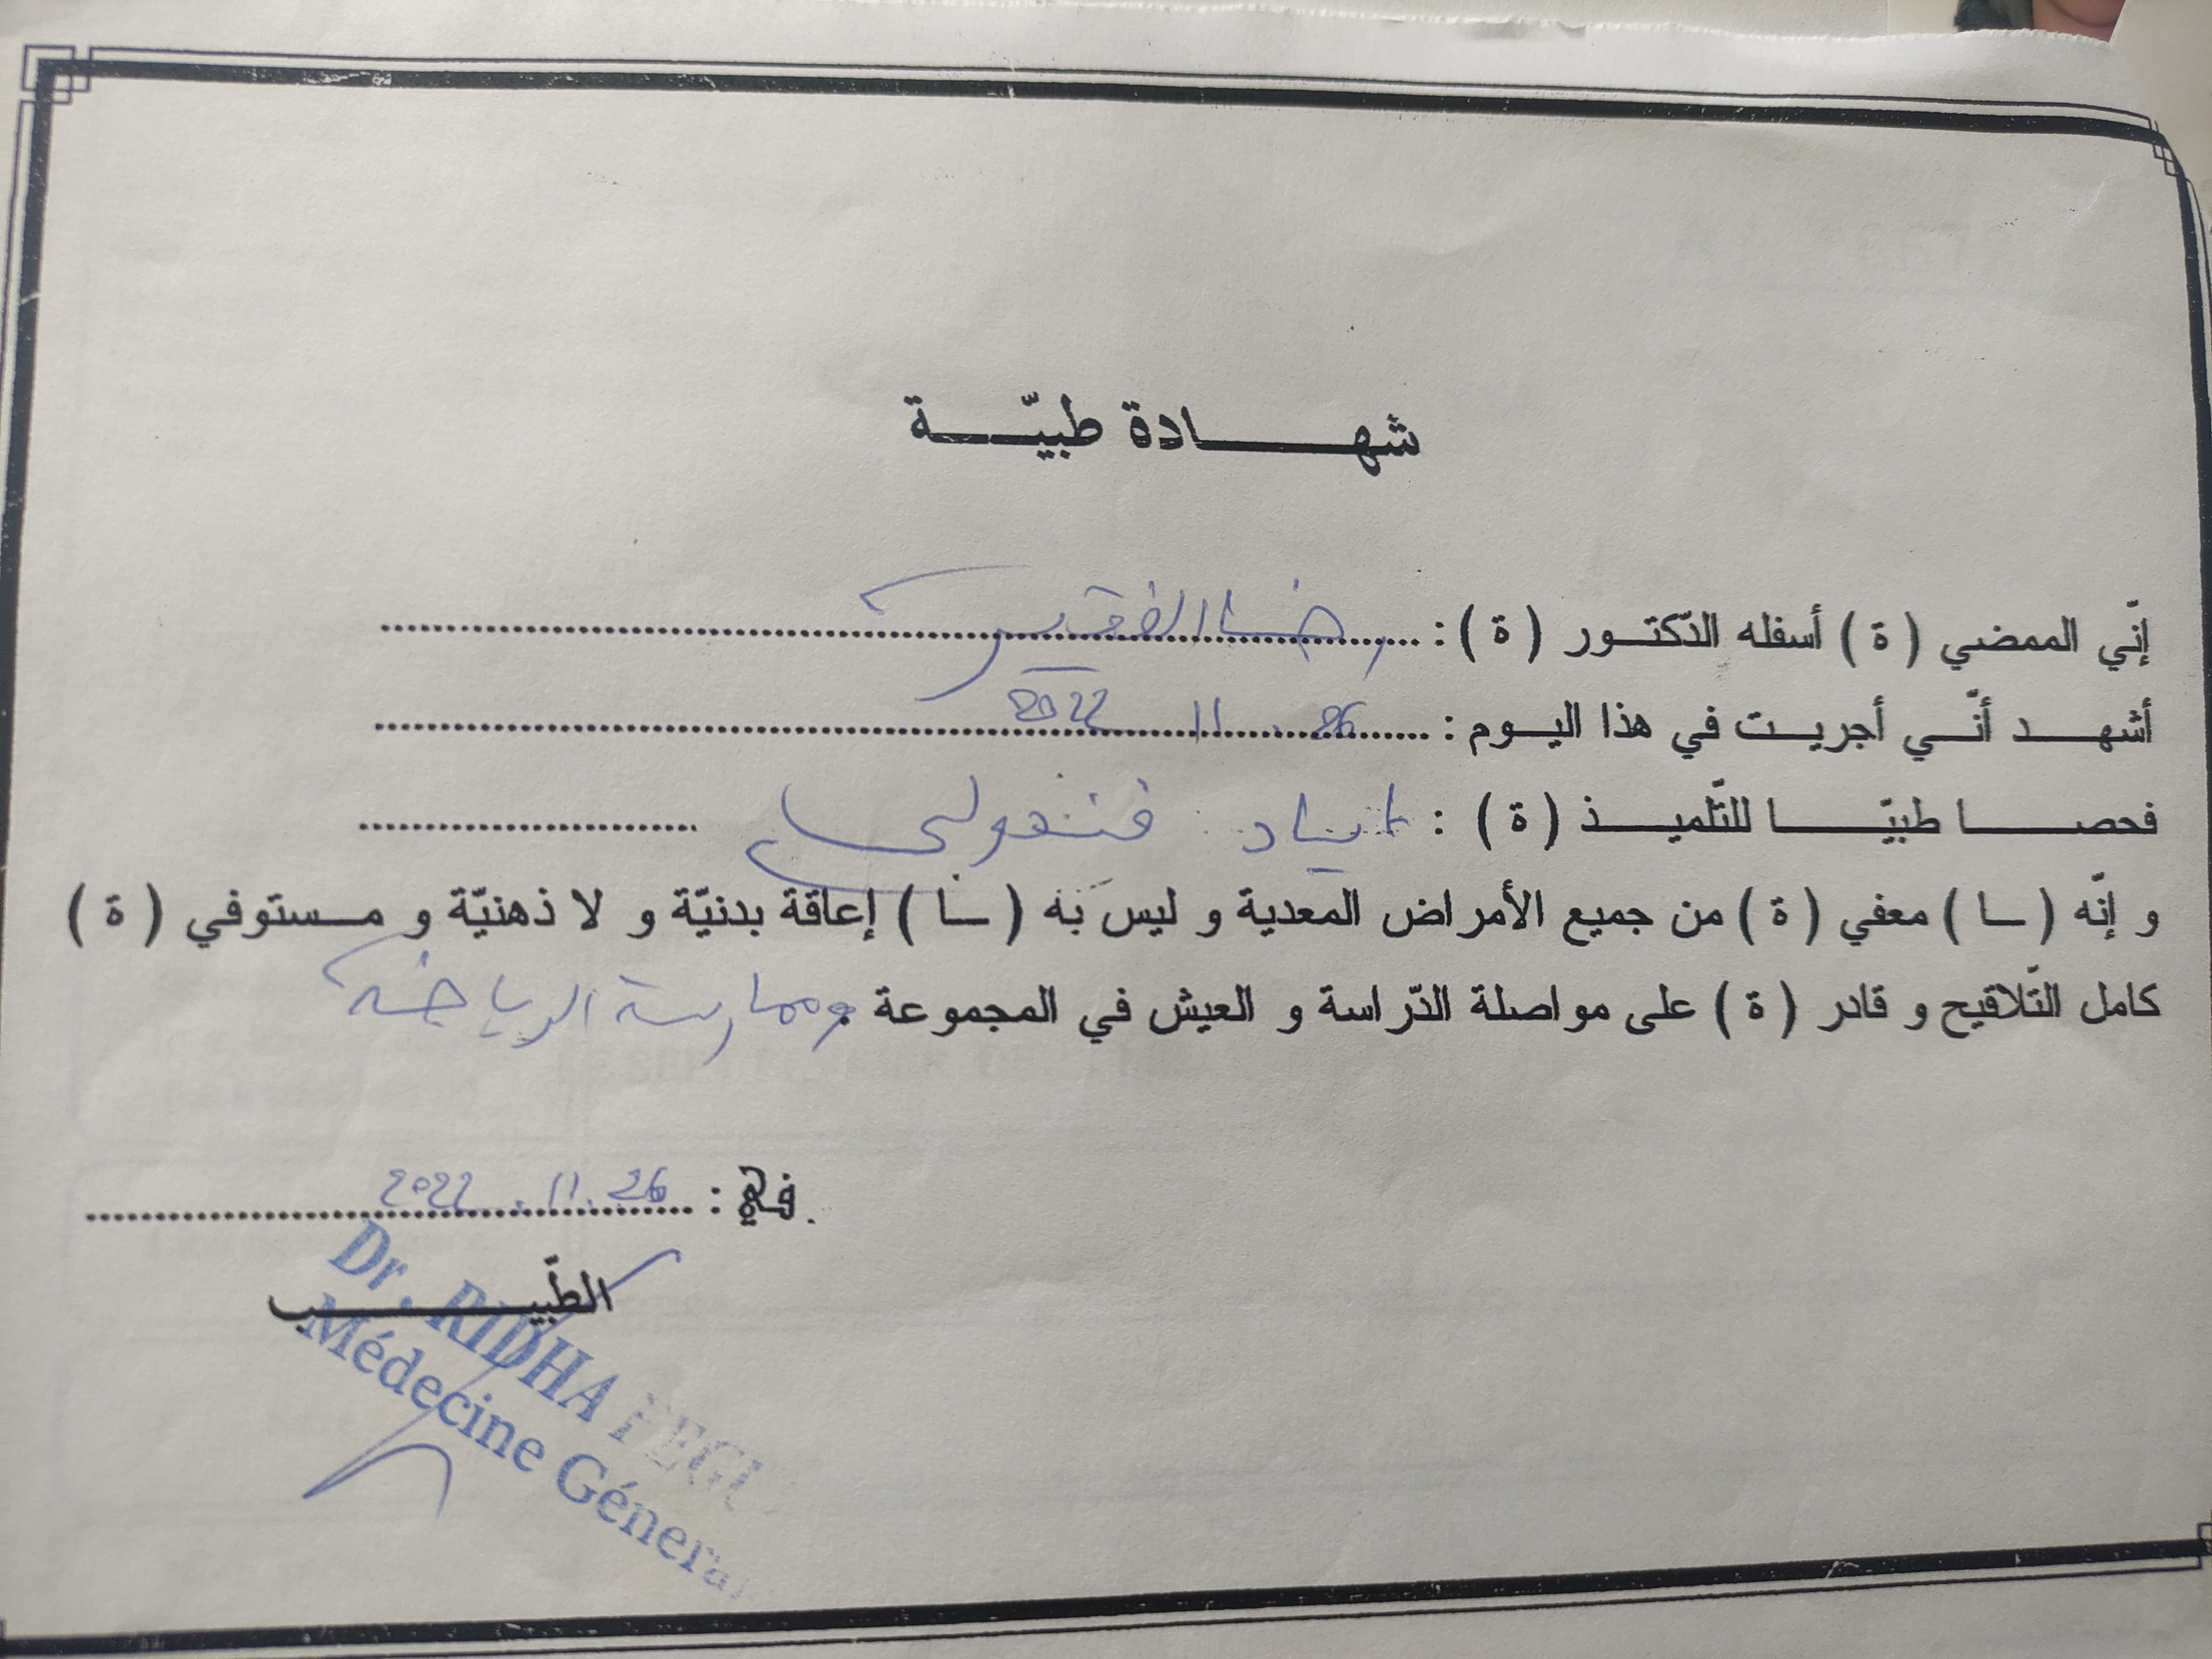 شهادة طبيّة
إنّي الممضي ( ة ) أسفله الدّكتور ( ة ) : رضا الفقير
أشهد أنّي أجريت في هذا اليوم : 26 . 11 2022
فحصا طبيّا للتّلميذ ( ة ) : اياد
و إنّه ( ـا ) معفي ( ة ) من جميع الأمراض المعدية و ليس به ( ـا ) إعاقة بدنيّة و لا ذهنيّة و مستوفي ( ة )
كامل التّلاقيح و قادر ( ة ) على مواصلة الدّراسة و العيش في المجموعة وممارسة الرياضة
في : 26 . 11 . 2022
الطّبيب
Dr. RIDHA
Médecine